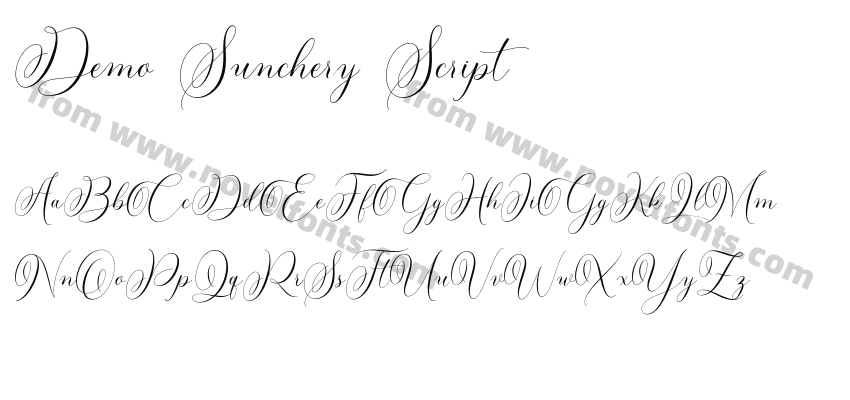 Demo Sunchery Script
AaBbCcDdEeFfGgHhIiGgKkLlMm
NnOoPpQqRrSsTtUuVvWwXxYyZz
from www.novelfonts.com
from www.novelfonts.com